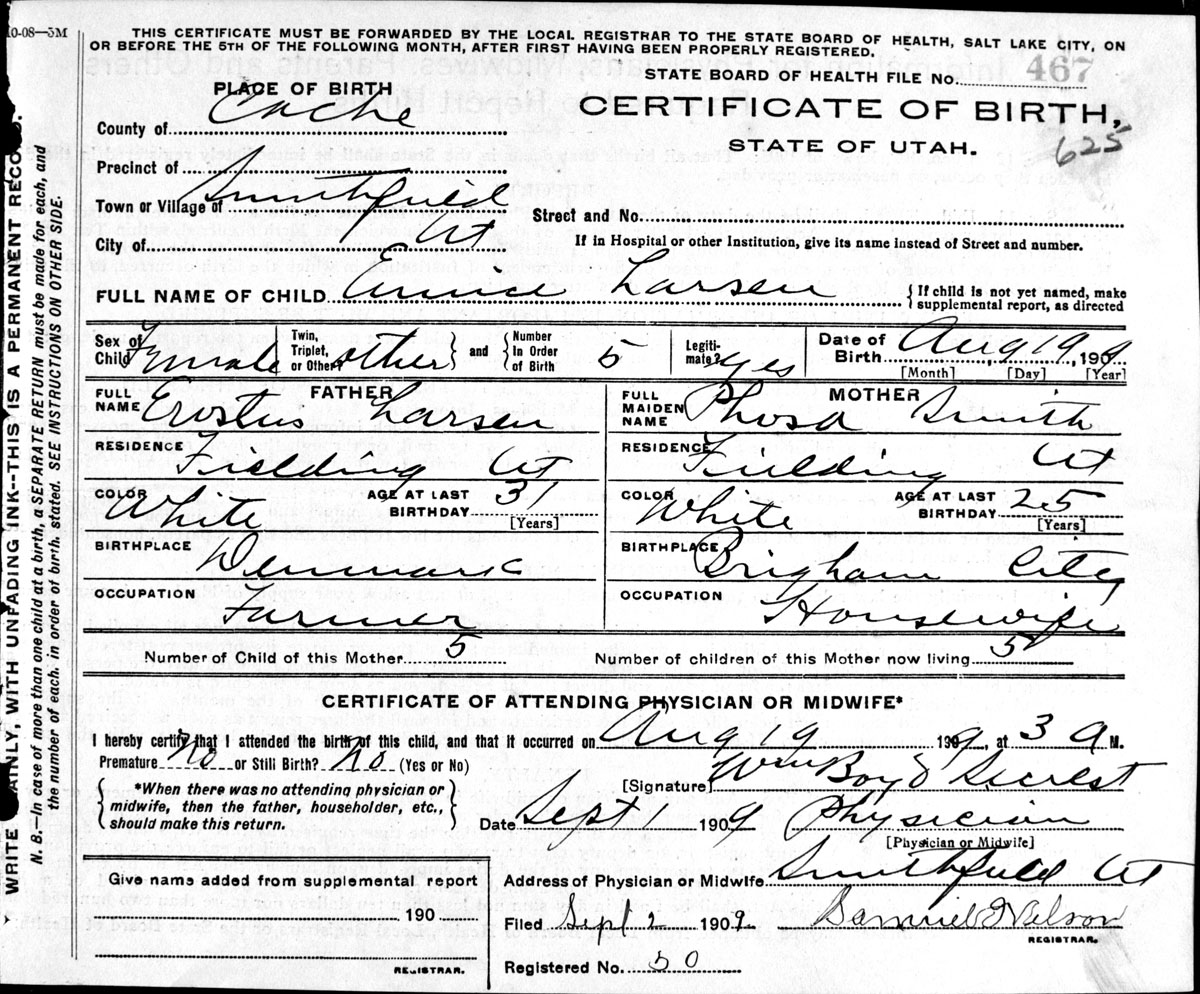 10-08—5M
THIS CERTIFICATE MUST BE FORWARDED BY THE LOCAL REGISTRAR TO THE STATE BOARD OF HEALTH, SALT LAKE CITY, ON
OR BEFORE THE 5TH OF THE FOLLOWING MONTH, AFTER FIRST HAVING BEEN PROPERLY REGISTERED.
STATE BOARD OF HEALTH FILE No. 467
PLACE OF BIRTH
CERTIFICATE OF BIRTH,
County of Cache
STATE OF UTAH.
625
Precinct of
Town or Village of Smithfield
Street and No.
City of Ut
If in Hospital or other Institution, give its name instead of Street and number.
FULL NAME OF CHILD Eunice Larsen
{ If child is not yet named, make
supplemental report, as directed
Sex of Child Female
Twin, Triplet, or Other? other } and { Number In Order of Birth 5
Legitimate? Yes
Date of Birth Aug 19 1909
[Month] [Day] [Year]
FATHER
FULL NAME Erastus Larsen
RESIDENCE Fielding Ut
COLOR White AGE AT LAST BIRTHDAY 31
[Years]
BIRTHPLACE Denmark
OCCUPATION Farmer
MOTHER
FULL MAIDEN NAME Smith
RESIDENCE Fielding Ut
COLOR White AGE AT LAST BIRTHDAY 25
[Years]
BIRTHPLACE Brigham City
OCCUPATION Housewife
Number of Child of this Mother 5 Number of children of this Mother now living 5
CERTIFICATE OF ATTENDING PHYSICIAN OR MIDWIFE*
I hereby certify that I attended the birth of this child, and that it occurred on Aug 19 1909, at 3 a M.
Premature No or Still Birth? No (Yes or No)
[Signature]
{ *When there was no attending physician or
midwife, then the father, householder, etc.,
should make this return. }
Date Sept 1 1909 Physician
[Physician or Midwife]
Give name added from supplemental report
190
REGISTRAR.
Address of Physician or Midwife Smithfield Ut
Filed Sept 2 1909 Nelson
REGISTRAR.
Registered No. 50
WRITE PLAINLY, WITH UNFADING INK--THIS IS A PERMANENT RECORD.
N. B.—In case of more than one child at a birth, a SEPARATE RETURN must be made for each, and
the number of each, in order of birth, stated. SEE INSTRUCTIONS ON OTHER SIDE.